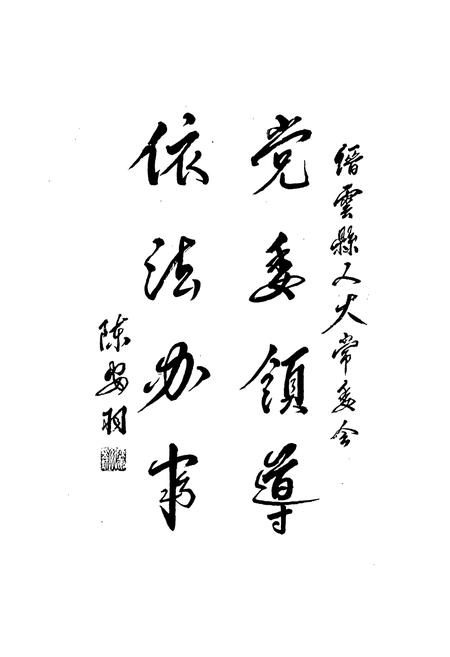 缙雲縣人大常委会
党委領導
依法办事
陈安羽